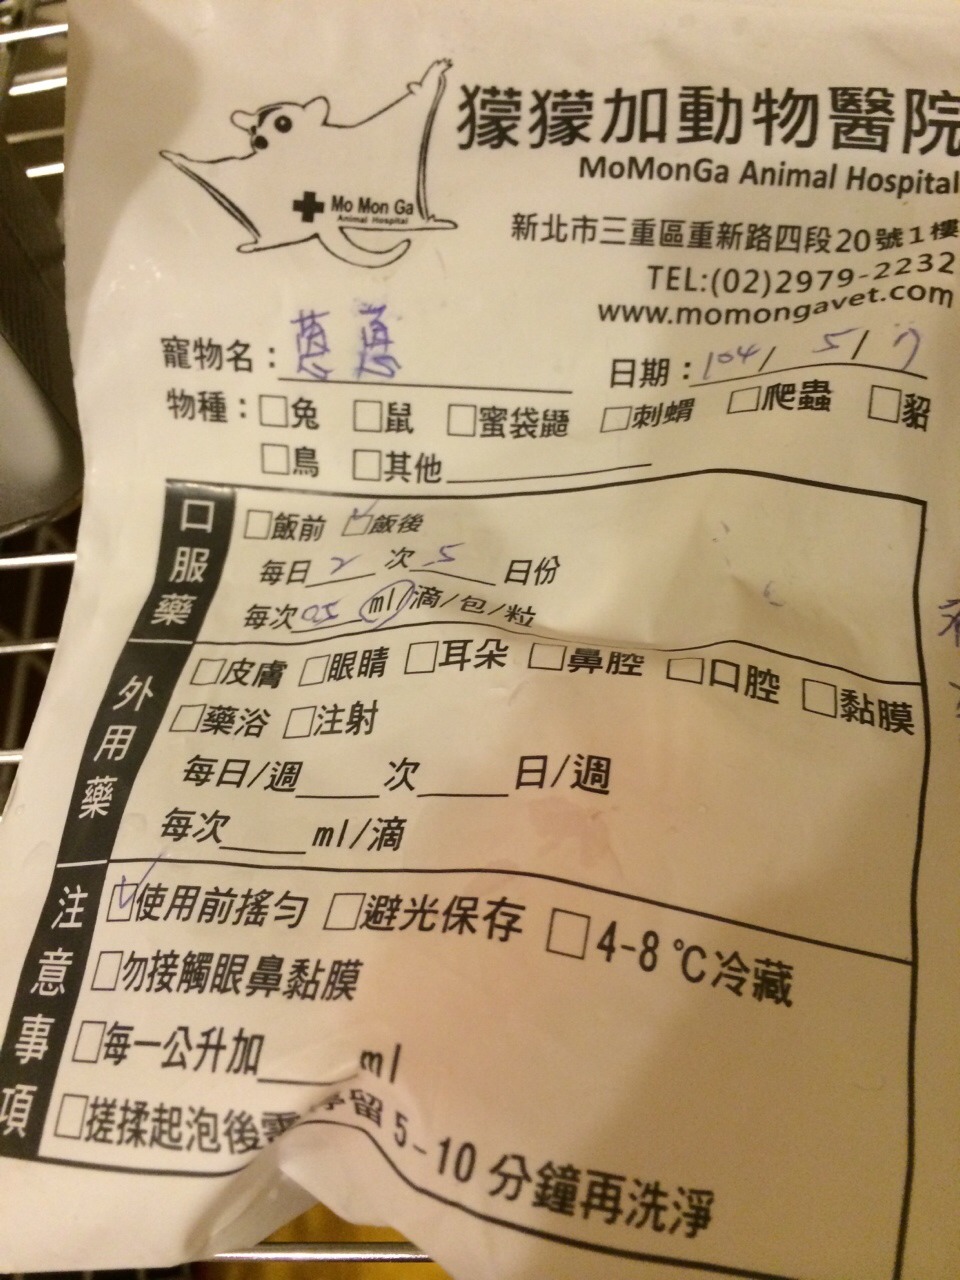 獴獴加動物醫院
MoMonGa Animal Hospital
Mo Mon Ga
Animal Hospital
新北市三重區重新路四段20號1樓
TEL:(02)2979-2232
www.momongavet.com
寵物名：
日期：104/ 5/
物種：□兔 □鼠 □蜜袋鼯 □刺蝟 □爬蟲 □貂
□鳥 □其他
口服藥
□飯前 ☑飯後
每日 2 次 5 日份
每次 0.5 ml/滴/包/粒
外用藥
□皮膚 □眼睛 □耳朵 □鼻腔 □口腔 □黏膜
□藥浴 □注射
每日/週 次 日/週
每次 ml/滴
注意事項
☑使用前搖勻 □避光保存 □4-8℃冷藏
□勿接觸眼鼻黏膜
□每一公升加 ml
□搓揉起泡後需停留5-10分鐘再洗淨